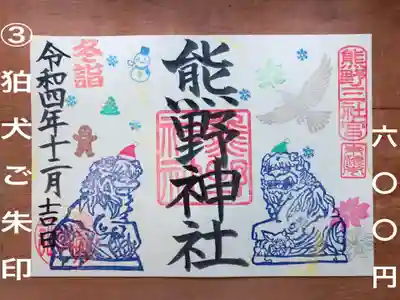 ③狛犬ご朱印
六〇〇円
冬詣
熊野神社
令和四年十二月吉日